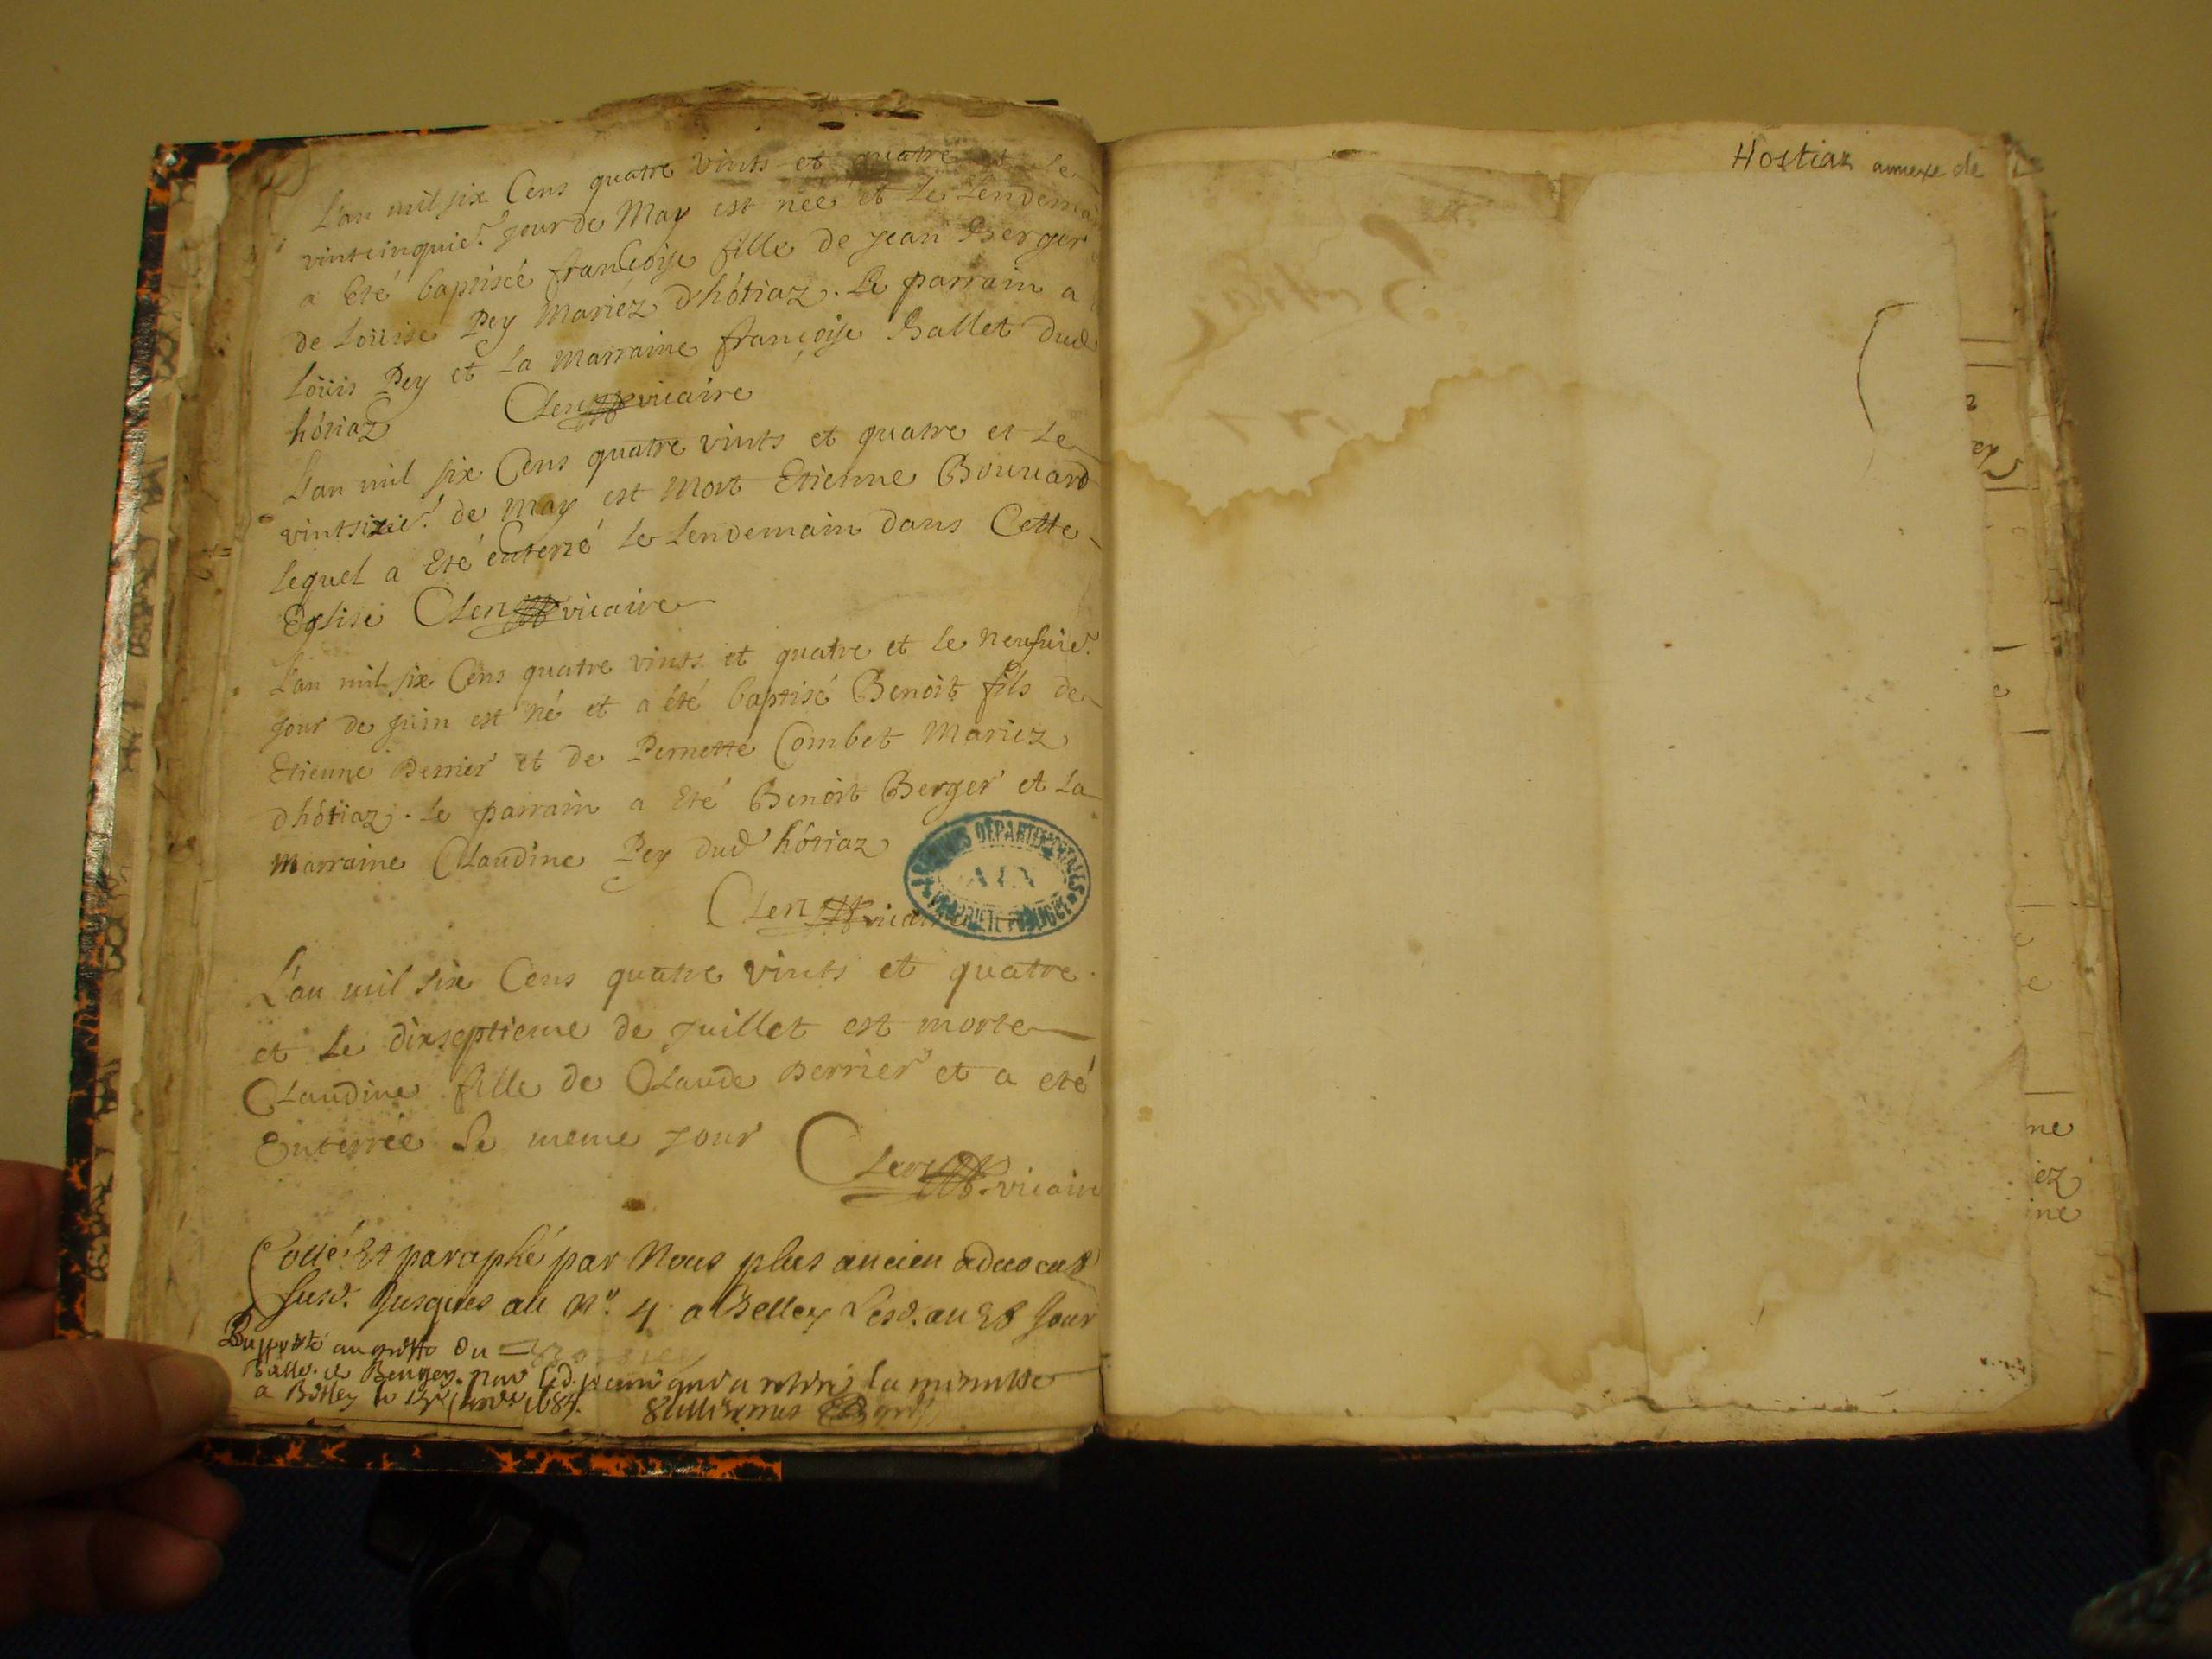 L'an mil six Cens quatre vints et quatre et le
vintcinquie? jour de May est née et le Lendemain
a Eté baptisée françoise fille de jean Berger
de Loüise Pey Mariéz d'hótiaz. Le parrain a
Loüis Pey et La Marraine françoise Ballet dud
hótiaz Clerc vicaire
L'an mil six Cens quatre vints et quatre et Le
vintsixie? de May est Mort Etienne Bouuard
Lequel a Eté enterré Le Lendemain dans Cette
Eglise Clerc vicaire
L'an mil six Cens quatre vints et quatre et le neufuie?
jour de juin est né et a été baptisé Benoit fils de
Etienne Perrier et de Pernette Combet Mariez
d'hótiaz. Le parrain a Eté Benoit Berger et La
Marraine Claudine Pey dud hótiaz
Clerc vicaire
ARCHIVES DÉPARTEMENTALES
AIN
PROPRIÉTÉ PUBLIQUE
L'an mil six Cens quatre vints et quatre
et Le dixseptieme de juillet est morte
Claudine fille de Claude Perrier et a eté
Enterrée Le meme jour
Clerc vicaire
Cotté Et paraphé par Nous plus ancien aduocat
susd. Jusques au No. 4 a Belley Lesd. an Et Jour
au greffe du
Ball. de Beugey par led. qui a retiré la minutte
a Belley le 1684.
Hostiaz annexe de
ne
ez
ine